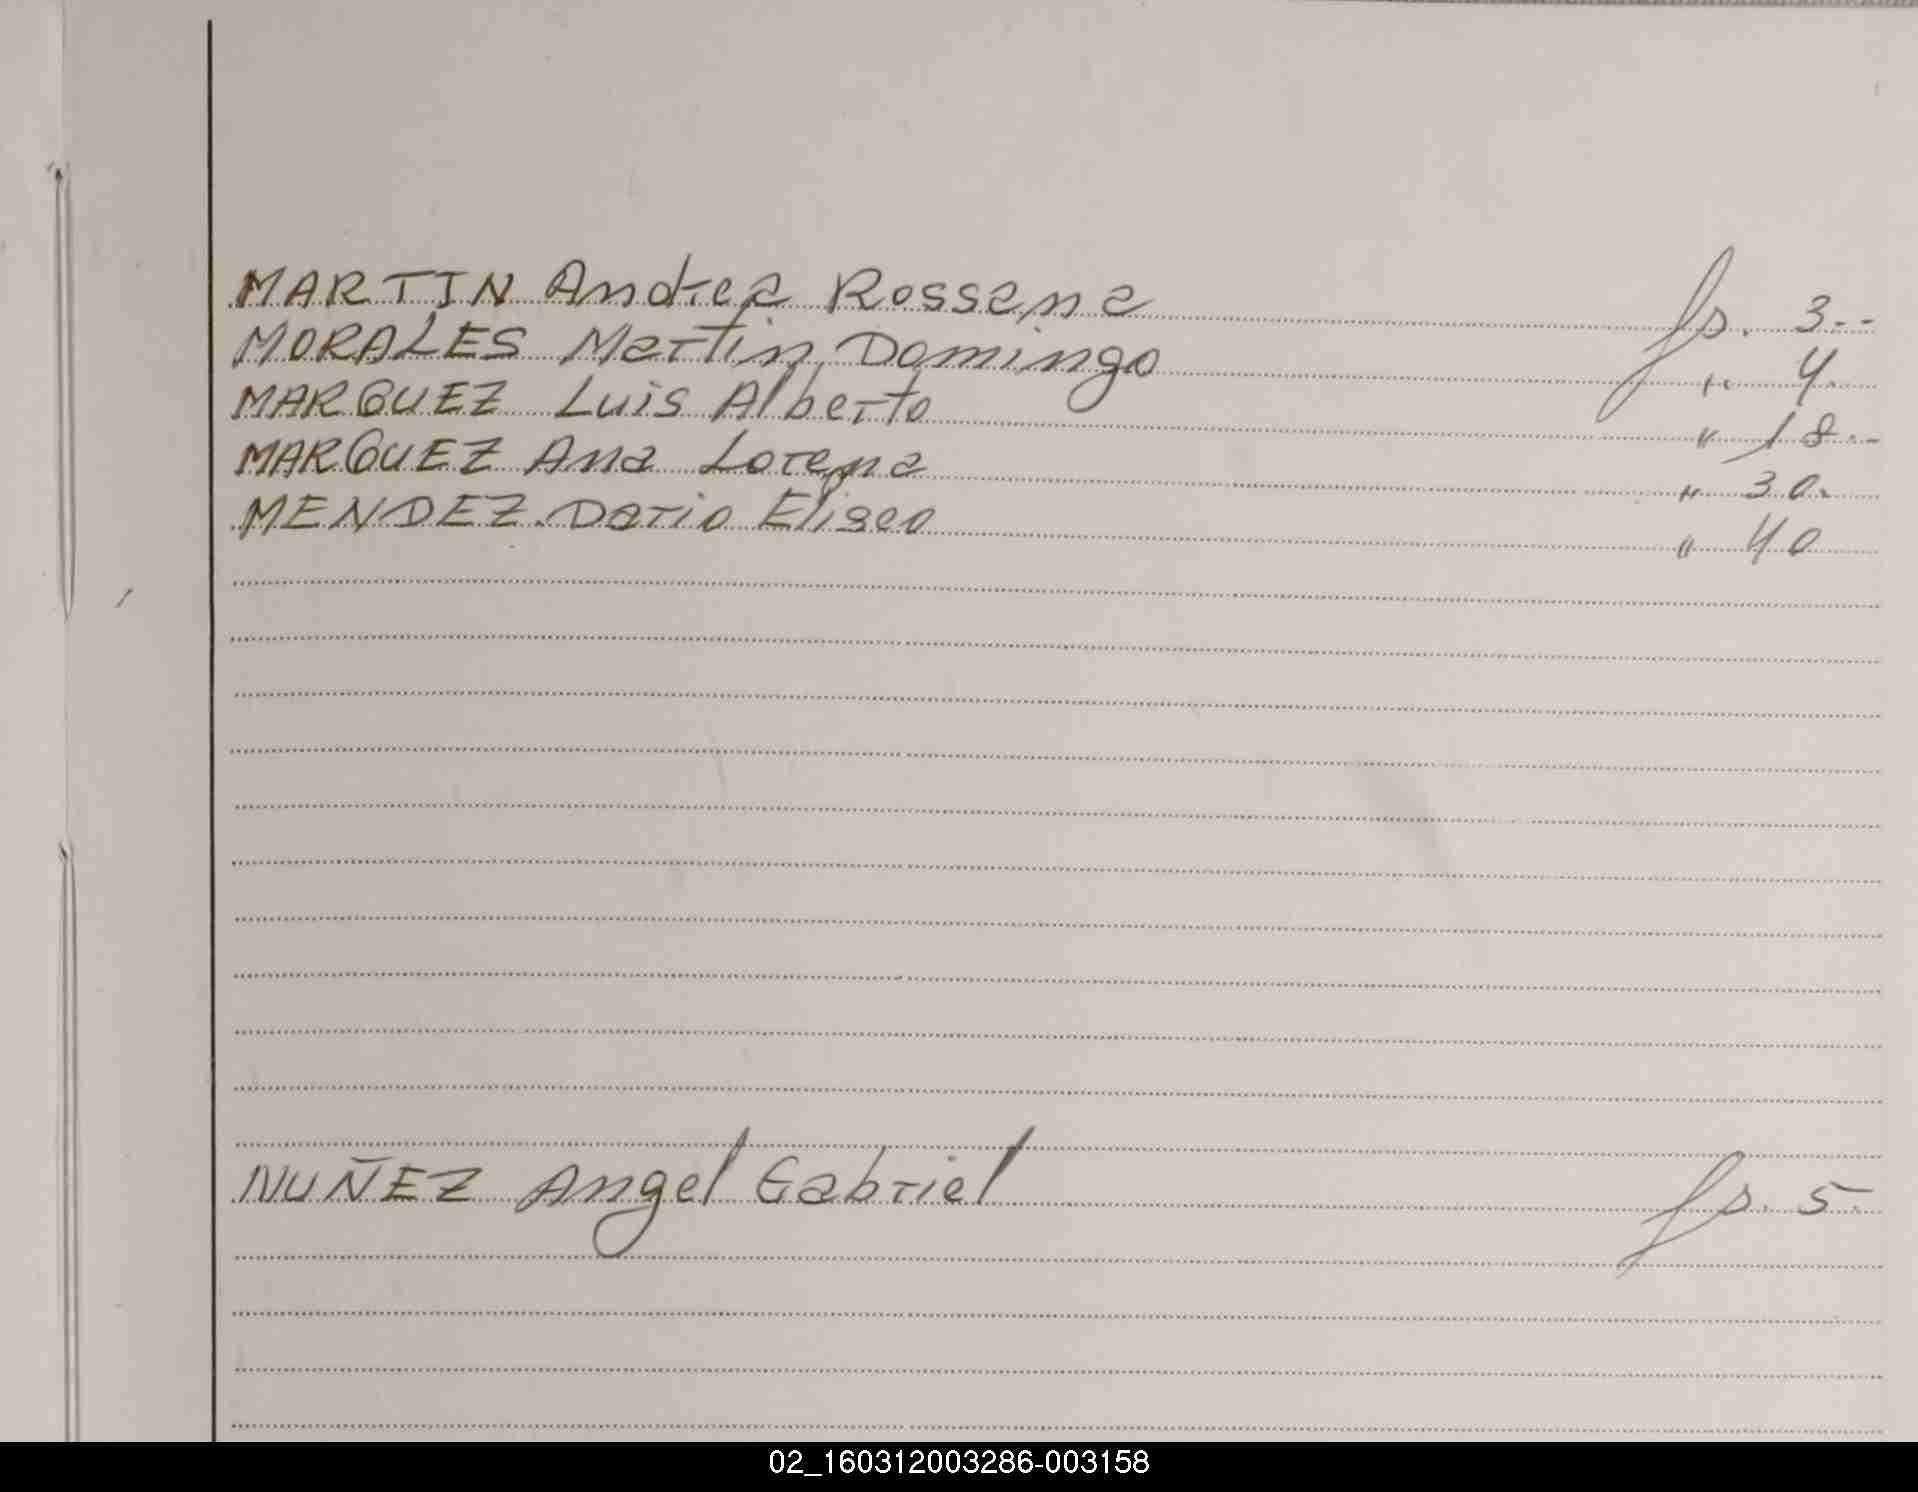 MARTIN Andrea Rossana fs. 3.--
MORALES Martin Domingo " 4.
MARQUEZ Luis Alberto " 18.--
MARQUEZ Ana Lorena " 30.
MENDEZ. Dario Eliseo " 40
NUÑEZ Angel Gabriel fs. 5.-
02_160312003286-003158